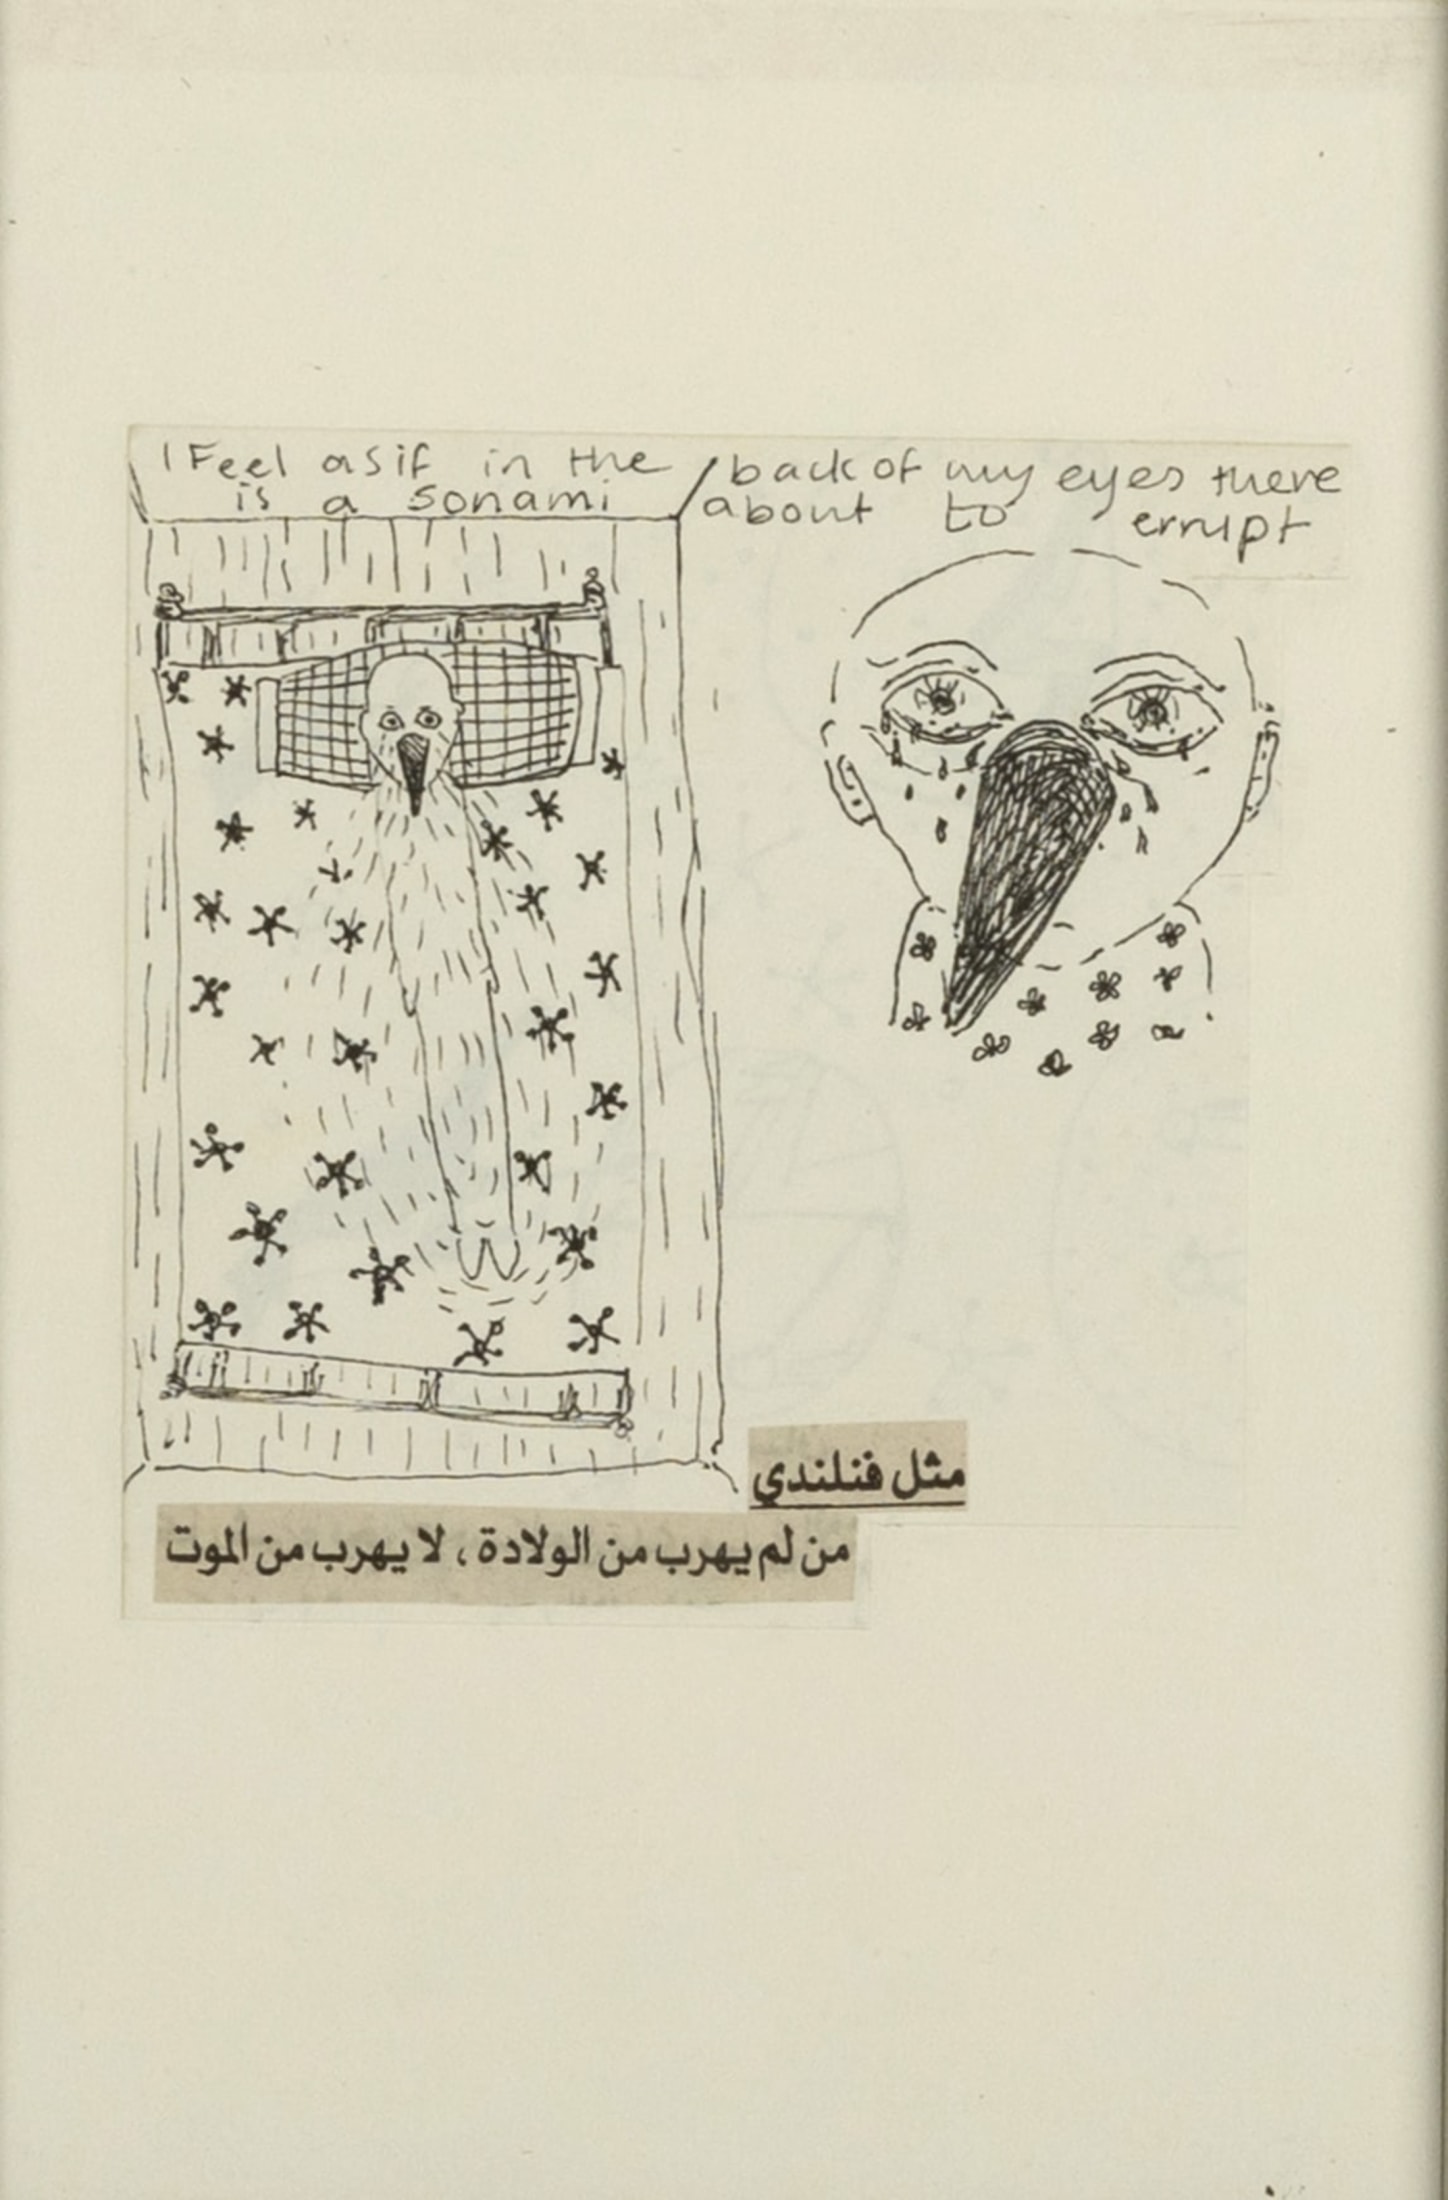 I Feel as if in the back of my eyes there
is a sonami about to errupt
مثل فنلندي
من لم يهرب من الولادة، لا يهرب من الموت